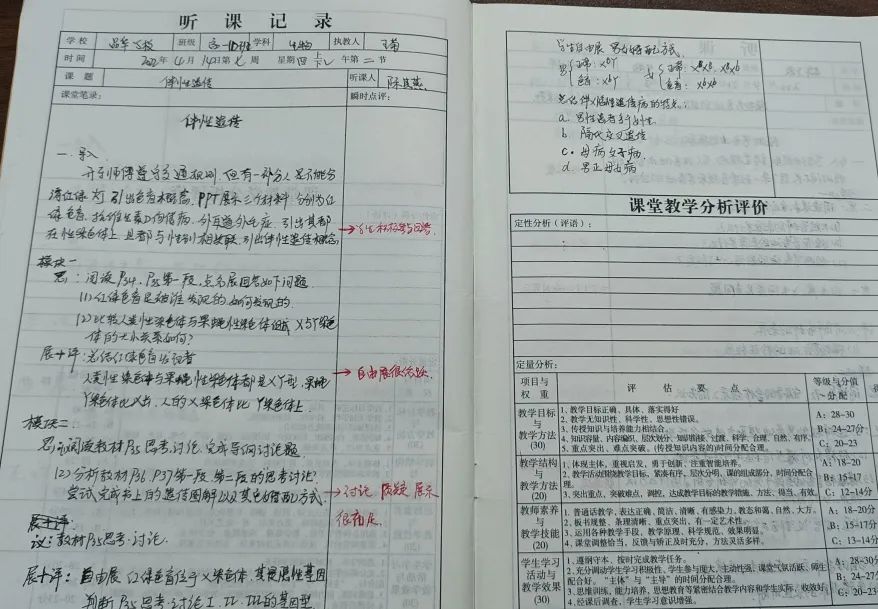 听 课 记 录
学 校 班级 学科 生物 执教人
时 间 2022年4月14日第七周 星期四 上/下午第二节
课 题 伴性遗传 听课人
课堂笔录： 瞬时点评：
伴性遗传
一. 导入
开车师傅遵守交通规则，但有一部分人是不能分
清红绿灯，引出色盲和患病，PPT展示三个材料，分别为红
绿色盲、抗维生素D佝偻病、外耳道多毛症，引出其都
在性染色体上，且都与性别相关联，引出伴性遗传概念
→学生积极参与回答.
模块一
思：阅读P34、P35第一段，点名展回答如下问题
(1)红绿色盲是被谁发现的，如何发现的.
(2)比较人类性染色体与果蝇性染色体组成 X与Y染色
体的大小关系如何？
展+评：总结红绿色盲发现者
人类性染色体与果蝇性染色体都是XY型，果蝇
Y染色体比X大，人的X染色体比Y染色体大.
→自由展很活跃.
模块二：
思：(1)阅读教材P35思考·讨论，完成导问讨论题
(2)分析教材P36、P37第一段、第二段的思考讨论.
尝试完成书上的遗传图解以及其他婚配方式.
→讨论 质疑 展示
很充足.
议：教材P35思考·讨论.
展+评：自由展 红绿色盲位于X染色体，其是隐性基因
判断P35思考·讨论 I、II、III的基因型
学生自由展 男女婚配方式.
男 正常：XᴮY × 女 正常：XᴮXᴮ、XᴮXᵇ
色盲：XᵇY 色盲：XᵇXᵇ
总结伴X隐性遗传病的特点：
a. 男性患者多于女性
b. 隔代交叉遗传
c. 母病子必病
d. 男正母女
课堂教学分析评价
定性分析（评语）：
定量分析：
项目与权重 评 估 要 点 等级与分值分配
教学目标与教学方法(30)
1. 教学目标正确、具体、落实得好
2. 教学无知识性、科学性、思想性错误。
3. 传授知识与培养能力相结合。
4. 知识容量、内容编织、层次划分、知识衔接、过渡、科学、合理、自然、有序。
5. 重点突出、难点突破。(传授知识内容的)时间分配合理。
A：28–30
B：24–27分
C：20–23
教学结构与教学方法(20)
1. 体现主体，重视启发，勇于创新、注重智能培养。
2. 教学活动围绕教学目标，紧凑有序，层次分明，课的组成部分，时间分配合理。
3. 突出重点，突破难点，调控，达成教学目标的教学措施、方法、得当、有效
A：18–20
B：15–17
C：12–14分
教师素养与教学技能(20)
1. 普通话教学，表达正确、简洁、清晰、有感染力，教态和蔼、自然、大方。
2. 板书规整、条理清晰、重点突出、有一定艺术性。
3. 运用各种教学手段，教学原理、科学规范、效果明显。
4. 课堂调整恰当，反馈与矫正及时充分，方法灵活多样。
A：18–20分
B：15–17分
C：13–14分
学生学习活动与教学效果(30)
1. 遵纲守本、按时完成教学任务。
2. 充分调动学生学习积极性，学生参与度大，主动性强，课堂气氛活跃、师生配合好。“主体”与“主导”的时间分配合理。
3. 思维训练，能力培养，思想教育等紧密结合教学内容和学生实际，收效好
4. 经课后调查、学生学习意识增强。
A：28–30分
B：24–27分
C：20–23